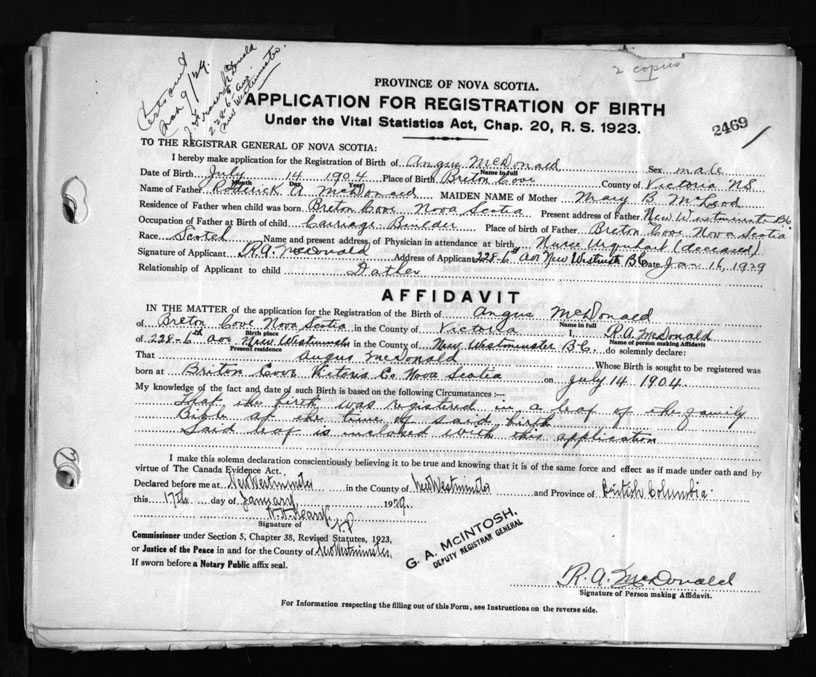 2 copies
Certs sent
Mar 9/29.
J. Fraser McDonald
228-6 ave
New Westminster.
PROVINCE OF NOVA SCOTIA.
APPLICATION FOR REGISTRATION OF BIRTH
Under the Vital Statistics Act, Chap. 20, R. S. 1923.
2469
TO THE REGISTRAR GENERAL OF NOVA SCOTIA:
I hereby make application for the Registration of Birth of Angus McDonald Sex male
Name in full
Date of Birth July 14 1904 Place of Birth Breton Cove County of Victoria N.S.
Month Day Year
Name of Father Roderick A. McDonald MAIDEN NAME of Mother Mary B. McLeod
Residence of Father when child was born Breton Cove Nova Scotia Present address of Father New Westminster B.C.
Occupation of Father at Birth of child Carriage Builder Place of birth of Father Breton Cove Nova Scotia
Race Scotch Name and present address of Physician in attendance at birth Nurse Urquhart (deceased)
Signature of Applicant R.A. McDonald Address of Applicant 228-6th ave New Westmin B.C. Date Jan 16, 1929
Relationship of Applicant to child Father
AFFIDAVIT
IN THE MATTER of the application for the Registration of the Birth of Angus McDonald
Name in full
of Breton Cove Nova Scotia in the County of Victoria I, R.A. McDonald
Birth place Name of person making Affidavit
of 228-6th ave New Westminster in the County of New Westminster B.C. do solemnly declare:
Present residence
That Angus McDonald Whose Birth is sought to be registered was
born at Briton Cove Victoria Co Nova Scotia on July 14 1904
My knowledge of the fact and date of such Birth is based on the following Circumstances :--
That the birth was registered in a leaf of the family
Bible at the time of said birth
Said leaf is inclosed with this application
I make this solemn declaration conscientiously believing it to be true and knowing that it is of the same force and effect as if made under oath and by
virtue of The Canada Evidence Act.
Declared before me at New Westminster in the County of New Westminster and Province of British Columbia.
this 17th day of January 1929.
J.P.
Signature of
Commissioner under Section 5, Chapter 38, Revised Statutes, 1923,
or Justice of the Peace in and for the County of New Westminster.
If sworn before a Notary Public affix seal.
G. A. McINTOSH.
DEPUTY REGISTRAR GENERAL
R.A. McDonald
Signature of Person making Affidavit.
For Information respecting the filling out of this Form, see Instructions on the reverse side.